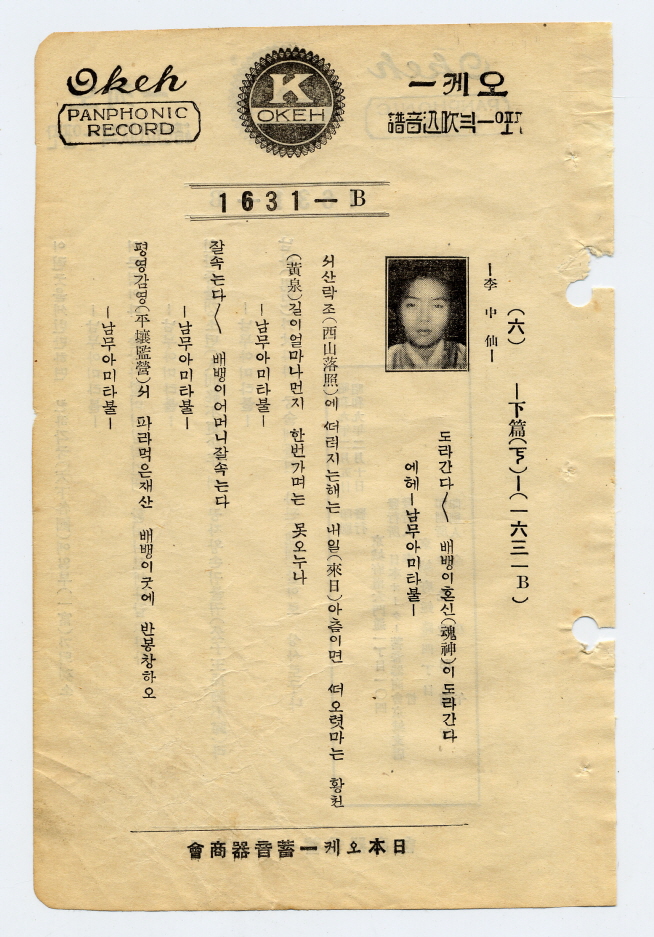 Okeh
PANPHONIC
RECORD
K
OKEH
오케ー
譜音込吹
1631—B
(六) ー下篇(下)ー(一六三一B)
ー李中仙ー
도라간다〱 배뱅이혼신(魂神)이 도라간다
에헤ー남무아미타불ー
ᄭᅥ산락조(西山落照)에 ᄯᅥ러지는해는 내일(來日)아츰이면 ᄯᅥ오렷마는 황천
(黃泉)길이얼마나먼지 한번가며는 못오누나
ー남무아미타불ー
잘속는다〱 배뱅이어머니잘속는다
ー남무아미타불ー
평영감영(平壤監營)ᄭᅥ 파라먹은재산 배뱅이굿에 반봉창하오
ー남무아미타불ー
日本오케ー蓄音器商會